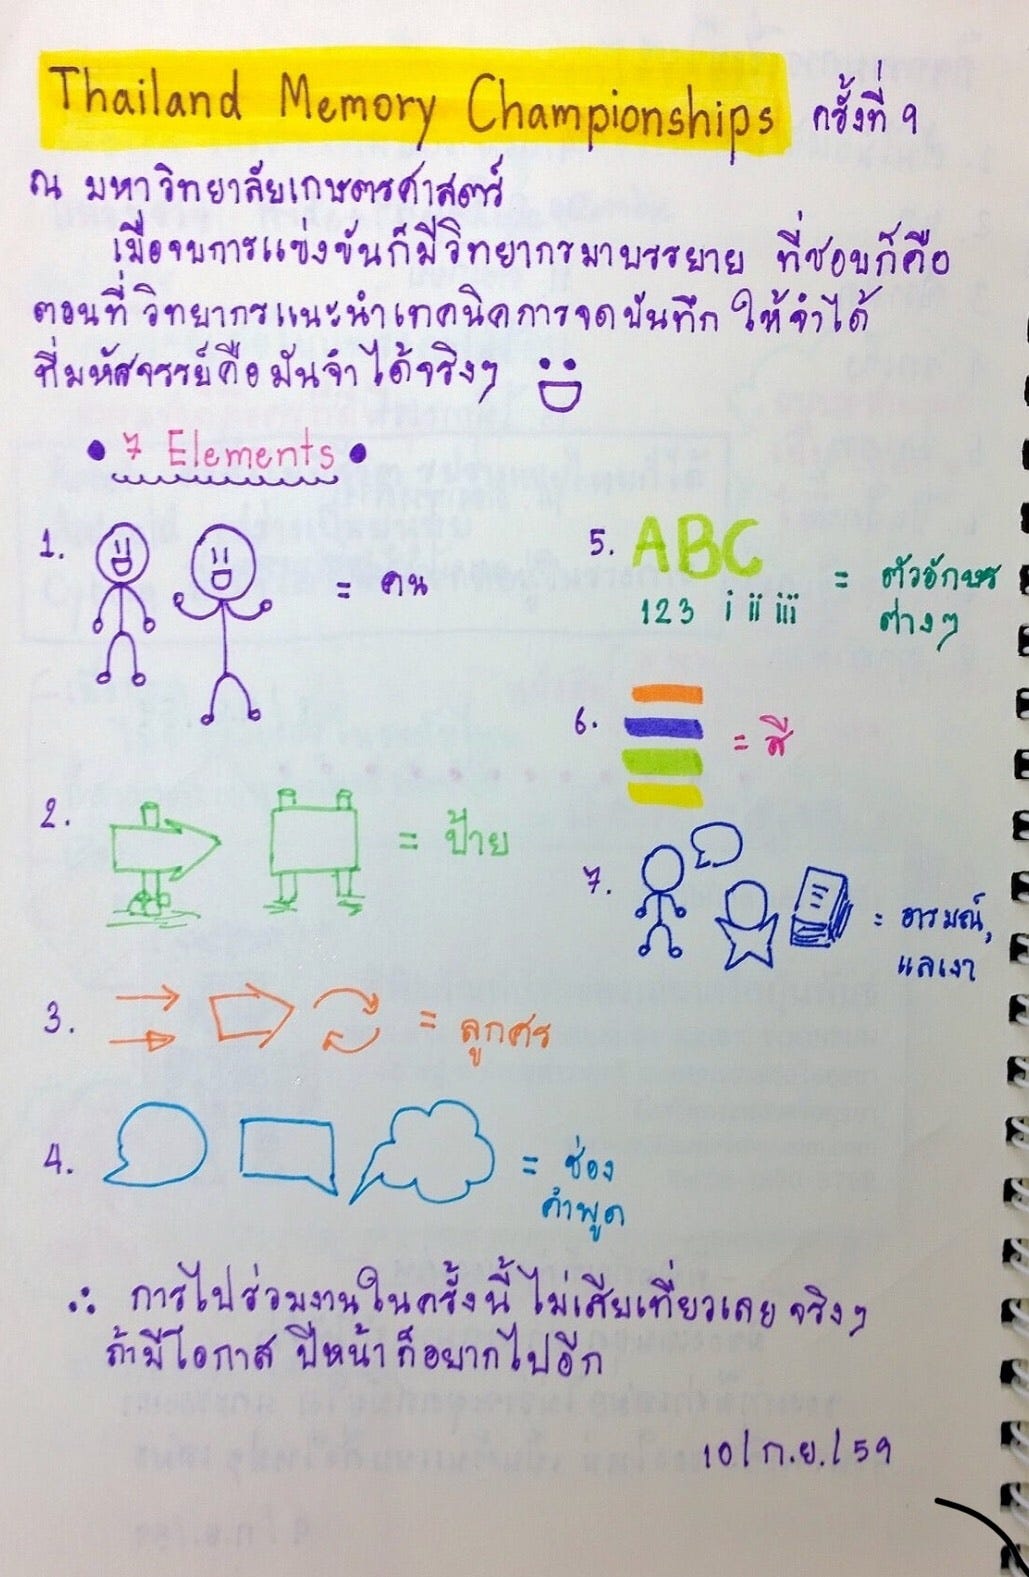 Thailand Memory Championships ครั้งที่ 9
ณ มหาวิทยาลัยเกษตรศาสตร์
เมื่อจบการแข่งขันก็มีวิทยากรมาบรรยาย ที่ชอบก็คือ
ตอนที่ วิทยากรแนะนำเทคนิคการจดบันทึก ให้จำได้
ที่มหัศจรรย์คือมันจำได้จริงๆ
• 7 Elements •
1. = คน
2. = ป้าย
3. = ลูกศร
4. = ช่อง
คำพูด
5. ABC
123 i ii iii = ตัวอักษร
ต่างๆ
6. = สี
7. = อารมณ์,
แสงเงา
∴ การไปร่วมงานในครั้งนี้ ไม่เสียเที่ยวเลย จริงๆ
ถ้ามีโอกาส ปีหน้า ก็อยากไปอีก
10/ก.ย./59